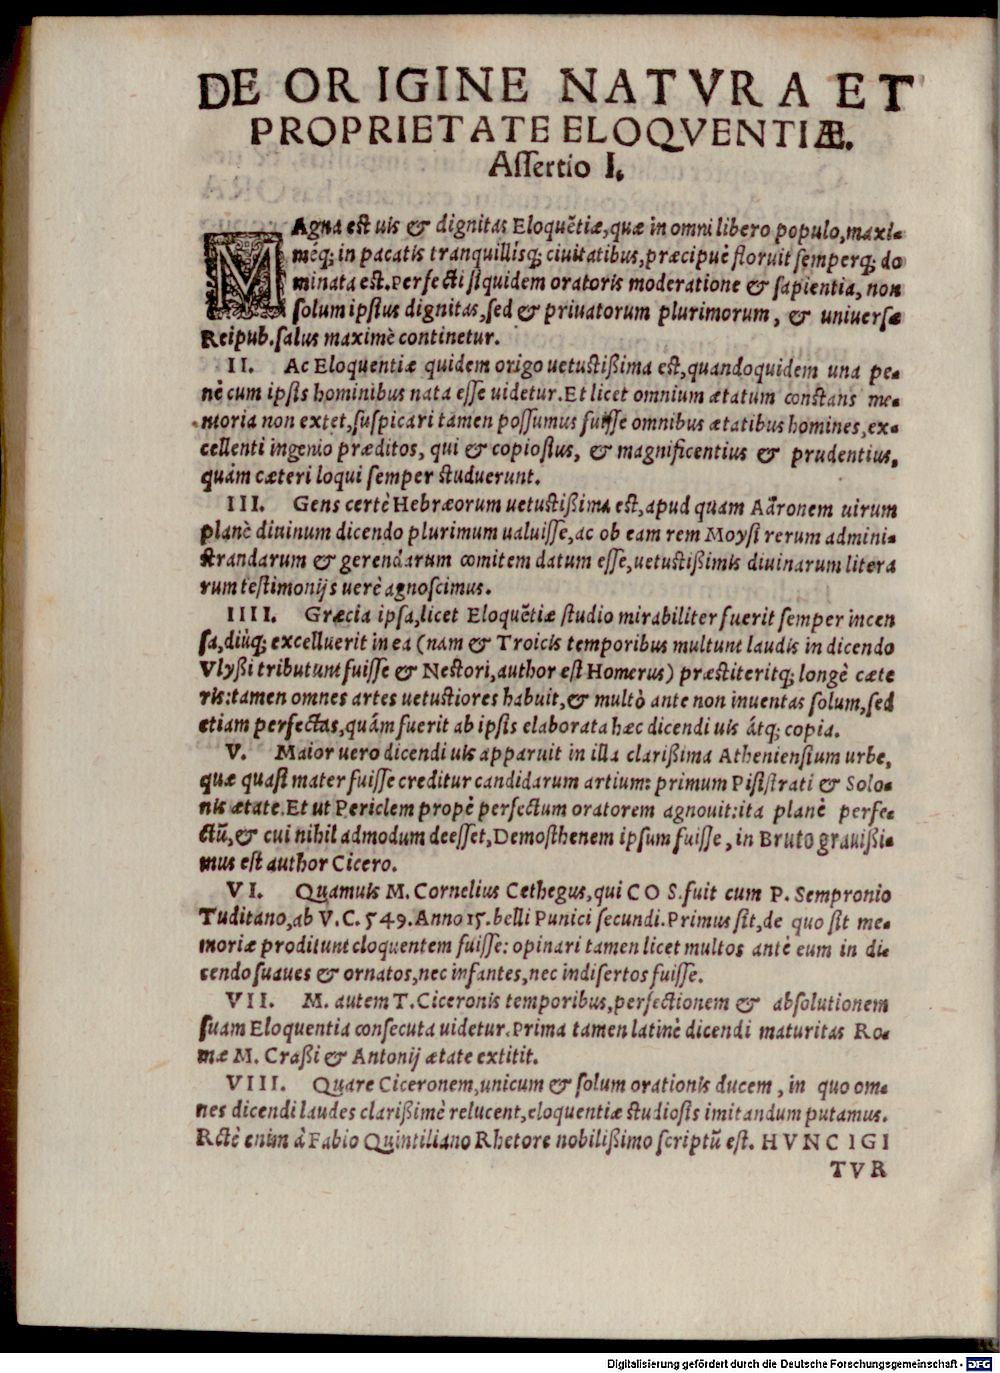 DE ORIGINE NATVRA ET
PROPRIETATE ELOQVENTIÆ.
Assertio I.
MAgna est uis & dignitas Eloquẽtiæ, quæ in omni libero populo, maxi-
mèq; in pacatis tranquillisq; ciuitatibus, præcipuè floruit semperq; do
minata est. Perfecti siquidem oratoris moderatione & sapientia, non
solum ipsius dignitas, sed & priuatorum plurimorum, & uniuersæ
Reipub. salus maximè continetur.
II. Ac Eloquentiæ quidem origo uetustißima est, quandoquidem una pe-
nè cum ipsis hominibus nata esse uidetur. Et licet omnium ætatum constans me-
moria non extet, suspicari tamen possumus fuisse omnibus ætatibus homines, ex-
cellenti ingenio præditos, qui & copiosius, & magnificentius & prudentius,
quàm cæteri loqui semper studuerunt.
III. Gens certè Hebræorum uetustißima est, apud quam Aaronem uirum
planè diuinum dicendo plurimum ualuisse, ac ob eam rem Moysi rerum admini-
strandarum & gerendarum comitem datum esse, uetustißimis diuinarum litera
rum testimonijs uerè agnoscimus.
IIII. Græcia ipsa, licet Eloquẽtiæ studio mirabiliter fuerit semper incen
sa, diùq; excelluerit in ea (nam & Troicis temporibus multum laudis in dicendo
Vlyßi tributum fuisse & Nestori, author est Homerus) præstiteritq; longè cæte
ris: tamen omnes artes uetustiores habuit, & multò ante non inuentas solum, sed
etiam perfectas, quàm fuerit ab ipsis elaborata hæc dicendi uis átq; copia.
V. Maior uero dicendi uis apparuit in illa clarißima Atheniensium urbe,
quæ quasi mater fuisse creditur candidarum artium: primum Pisistrati & Solo-
nis ætate. Et ut Periclem propè perfectum oratorem agnouit: ita planè perfe-
ctũ, & cui nihil admodum deesset, Demosthenem ipsum fuisse, in Bruto grauißi-
mus est author Cicero.
VI. Quamuis M. Cornelius Cethegus, qui COS. fuit cum P. Sempronio
Tuditano, ab V. C. 549. Anno 15. belli Punici secundi. Primus sit, de quo sit me-
moriæ proditum eloquentem fuisse: opinari tamen licet multos antè eum in di-
cendo suaues & ornatos, nec infantes, nec indisertos fuisse.
VII. M. autem T. Ciceronis temporibus, perfectionem & absolutionem
suam Eloquentia consecuta uidetur. Prima tamen latinè dicendi maturitas Ro-
mæ M. Craßi & Antonij ætate extitit.
VIII. Quare Ciceronem, unicum & solum orationis ducem, in quo om-
nes dicendi laudes clarißimè relucent, eloquentiæ studiosis imitandum putamus.
Rctè enim à Fabio Quintiliano Rhetore nobilißimo scriptũ est. HVNC IGI
TVR
Digitalisierung gefördert durch die Deutsche Forschungsgemeinschaft - DFG